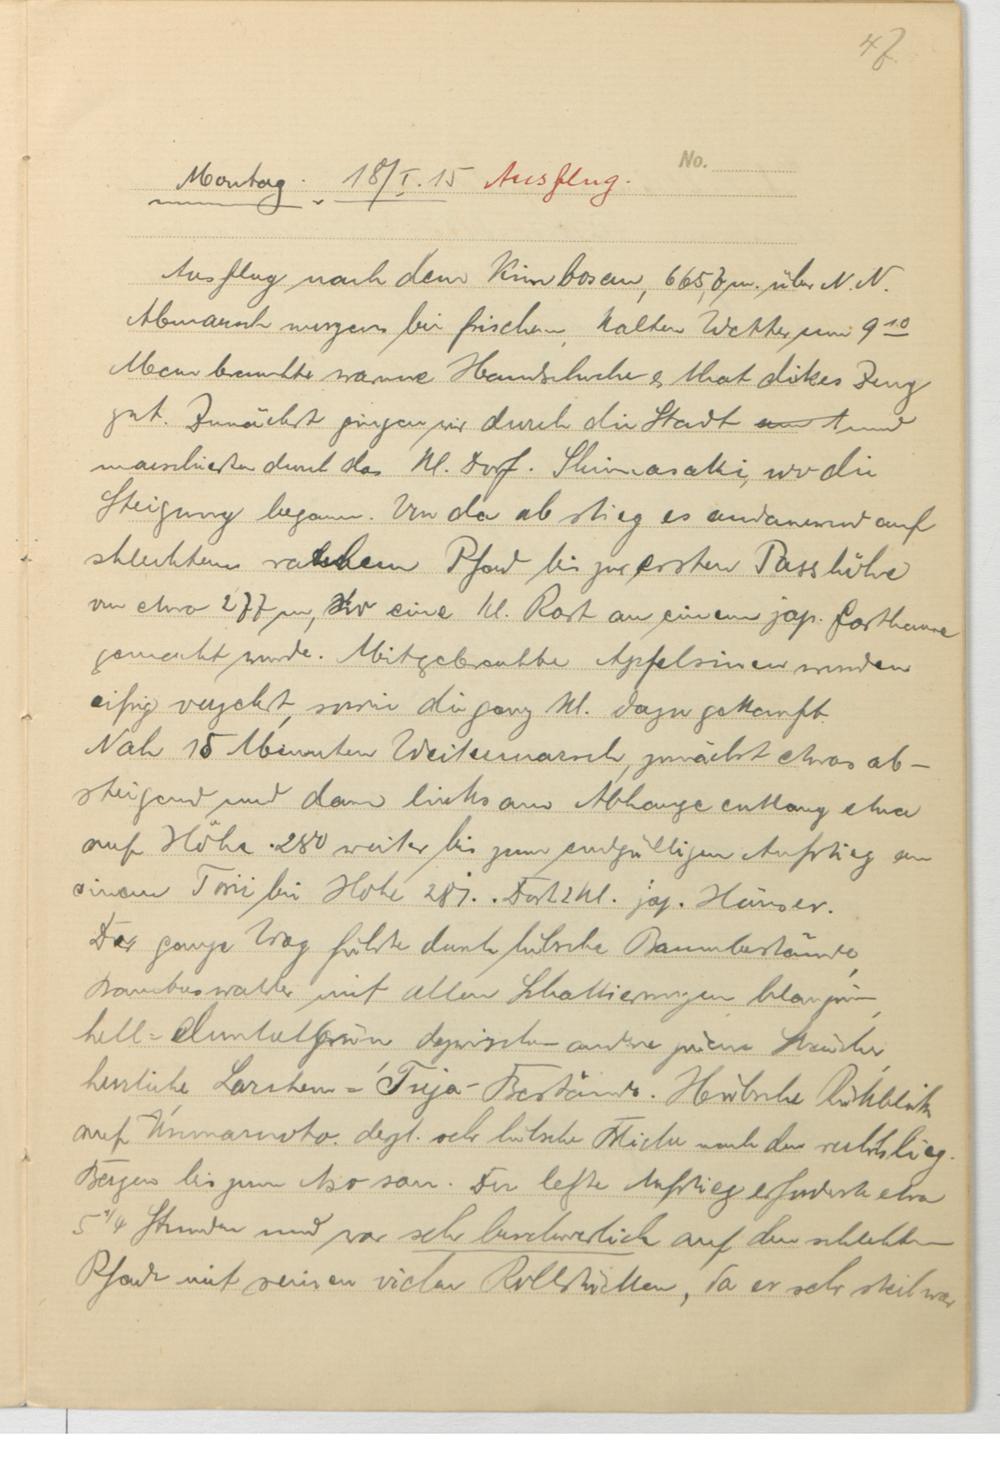 47
No.
Montag. 18/I.15 Ausflug.
Ausflug nach dem Kimbosan, 665,7 m. über N.N.
Abmarsch morgens bei frischem, kalten Wetter um 9 10
Man brauchte warme Handschuhe & that dikes Zeug
gut. Zunächst gingen wir durch die Stadt und
marschierten durch das kl. Dorf. Shimasaki, wo die
Steigung begann. Von da ab stieg es andauernd auf
schlechtem Pfad bis zur ersten Passhöhe
von etwa 277 m, wo eine kl. Rast an einem jap. Gasthause
gemacht wurde. Mitgebrachte Apfelsinen wurden
eifrig verzehrt, sowie die ganz kl. dazu gekauft
Nah 15 Minuten Weitermarsch, zunächst etwas ab-
steigend und dann links am Abhange entlang etwa
auf Höhe 280 weiter bis zum endgültigen Aufstieg an
einem Torii bei Höhe 287. Dort 2 kl. jap. Häuser.
Der ganze Weg führte durch hübsche Baumbestände,
Bambuswälder mit allen Schattierungen blaugrün,
hell= dunkelgrün dazwischen andre grüne Sträucher,
herrliche Larchen= Tuja- Bestände. Hübsche Rükblike
auf Kumamoto. degl. sehr hübsche Blicke nach den rechtslieg.
Bergen bis zum Aso san. Der letzte Aufstieg erforderte etwa
5/4 Stunden und war sehr beschwerlich auf dem schlechten
Pfade mit seinen vielen Rollstücken, da er sehr steil war